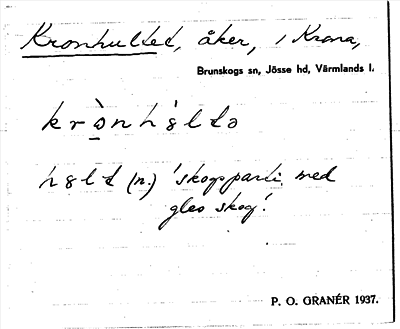 Kronhultet, åker, i Krona,
Brunskogs sn, Jösse hd, Värmlands l.
(n.) 'skogsparti med
gles skog'.
P. O. GRANÉR 1937.